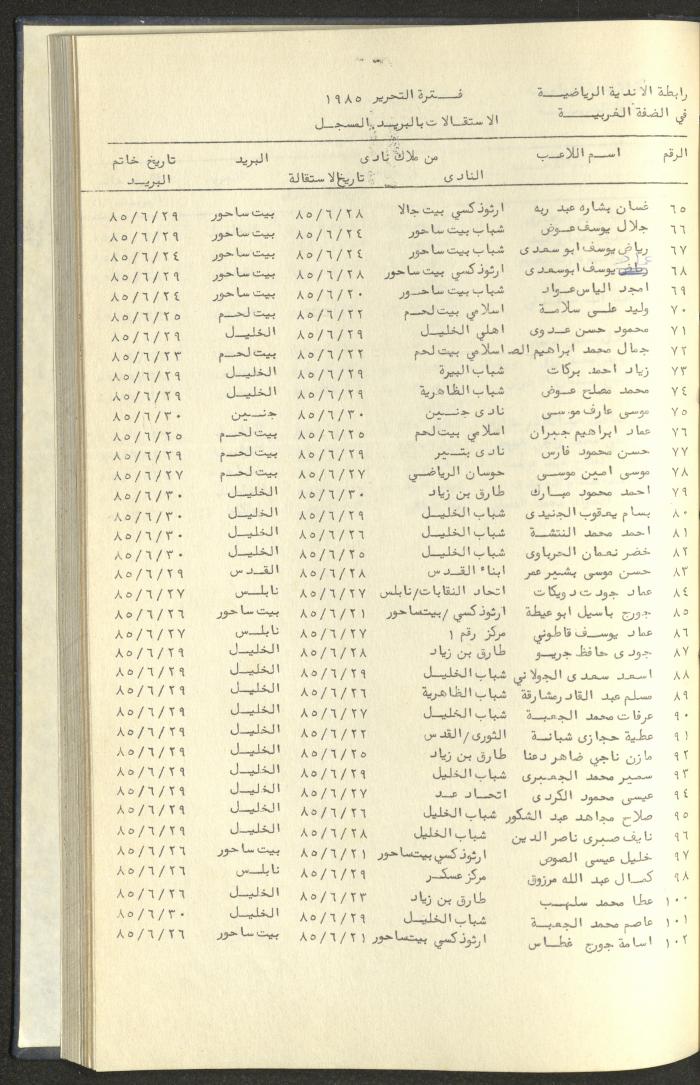 رابطة الاندية الرياضية فترة التحرير ١٩٨٥
في الضفة الغربية الاستقالات بالبريد المسجل
الرقم اسم اللاعب من ملاك نادى البريد تاريخ خاتم
النادى تاريخ الاستقالة البريد
٦٥ غسان بشاره عبد ربه ارثوذكسي بيت جالا ٨٥/٦/٢٨ بيت ساحور ٨٥/٦/٢٩
٦٦ جلال يوسف عوض شباب بيت ساحور ٨٥/٦/٢٤ بيت ساحور ٨٥/٦/٢٩
٦٧ رياض يوسف ابو سعدى شباب بيت ساحور ٨٥/٦/٢٤ بيت ساحور ٨٥/٦/٢٤
٦٨ يوسف ابوسعدى ارثوذكسي بيت ساحور ٨٥/٦/٢٨ بيت ساحور ٨٥/٦/٢٩
٦٩ امجد الياس عواد شباب بيت ساحور ٨٥/٦/٢٠ بيت ساحور ٨٥/٦/٢٤
٧٠ وليد علي سلامة اسلامي بيت لحم ٨٥/٦/٢٢ بيت لحم ٨٥/٦/٢٥
٧١ محمود حسن عدوى اهلي الخليل ٨٥/٦/٢٩ الخليل ٨٥/٦/٢٩
٧٢ جمال محمد ابراهيم الص اسلامي بيت لحم ٨٥/٦/٢٢ بيت لحم ٨٥/٦/٢٣
٧٣ زياد احمد بركات شباب البيرة ٨٥/٦/٢٩ الخليل ٨٥/٦/٢٩
٧٤ محمد مصلح عوض شباب الظاهرية ٨٥/٦/٢٩ الخليل ٨٥/٦/٢٩
٧٥ موسى عارف موسى نادى جنين ٨٥/٦/٣٠ جنين ٨٥/٦/٣٠
٧٦ عماد ابراهيم جبران اسلامي بيت لحم ٨٥/٦/٢٥ بيت لحم ٨٥/٦/٢٥
٧٧ حسن محمود فارس نادى بتير ٨٥/٦/٢٩ بيت لحم ٨٥/٦/٢٩
٧٨ موسى امين موسى حوسان الرياضي ٨٥/٦/٢٧ بيت لحم ٨٥/٦/٢٧
٧٩ احمد محمود مبارك طارق بن زياد ٨٥/٦/٣٠ الخليل ٨٥/٦/٣٠
٨٠ بسام يعقوب الجنيدى شباب الخليل ٨٥/٦/٢٩ الخليل ٨٥/٦/٣٠
٨١ احمد محمد النتشة شباب الخليل ٨٥/٦/٢٦ الخليل ٨٥/٦/٣٠
٨٢ خضر نعمان الحرباوى شباب الخليل ٨٥/٦/٢٥ الخليل ٨٥/٦/٣٠
٨٣ حسن موسى بشير عمر ابناء القدس ٨٥/٦/٢٨ القدس ٨٥/٦/٢٩
٨٤ عماد جودت دويكات اتحاد النقابات/نابلس ٨٥/٦/٢٧ نابلس ٨٥/٦/٢٧
٨٥ جورج باسيل ابو عيطة ارثوذكسي/بيتساحور ٨٥/٦/٢١ بيت ساحور ٨٥/٦/٢٦
٨٦ عماد يوسف قاطوني مركز رقم ١ ٨٥/٦/٢٧ نابلس ٨٥/٦/٢٧
٨٧ جودى حافظ جريو طارق بن زياد ٨٥/٦/٢٨ الخليل ٨٥/٦/٢٩
٨٨ اسعد سعدى الجولاني شباب الخليل ٨٥/٦/٢٩ الخليل ٨٥/٦/٢٩
٨٩ مسلم عبد القادر مشارقة شباب الظاهرية ٨٥/٦/٢٦ الخليل ٨٥/٦/٢٩
٩٠ عرفات محمد الجعبة شباب الخليل ٨٥/٦/٢٧ الخليل ٨٥/٦/٢٩
٩١ عطية حجازى شبانة الثورى/القدس ٨٥/٦/٢٢ الخليل ٨٥/٦/٢٩
٩٢ مازن ناجي ضاهر دعنا طارق بن زياد ٨٥/٦/٢٥ الخليل ٨٥/٦/٢٩
٩٣ سمير محمد الجعبرى شباب الخليل ٨٥/٦/٢٩ الخليل ٨٥/٦/٢٩
٩٤ عيسى محمود الكردى اتحاد عد ٨٥/٦/٢٧ الخليل ٨٥/٦/٢٩
٩٥ صلاح مجاهد عبد الشكور شباب الخليل ٨٥/٦/٢٦ الخليل ٨٥/٦/٢٩
٩٦ نايف صبرى ناصر الدين شباب الخليل ٨٥/٦/٢٨ الخليل ٨٥/٦/٢٩
٩٧ خليل عيسى الصوص ارثوذكسي بيتساحور ٨٥/٦/٢١ بيت ساحور ٨٥/٦/٢٦
٩٨ كمال عبد الله مرزوق مركز عسكر ٨٥/٦/٢٩ نابلس ٨٥/٦/٢٦
١٠٠ عطا محمد سلهب طارق بن زياد ٨٥/٦/٢٣ الخليل ٨٥/٦/٢٦
١٠١ عاصم محمد الجعبة شباب الخليل ٨٥/٦/٢٩ الخليل ٨٥/٦/٣٠
١٠٢ اسامة جورج غطاس ارثوذكسي بيتساحور ٨٥/٦/٢١ بيت ساحور ٨٥/٦/٢٦